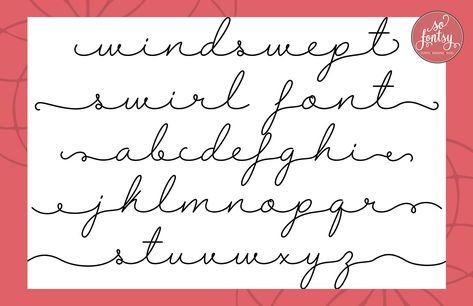 windswept
swirl font
abcdefghi
jklmnopqr
stuvwxyz
so
fontsy